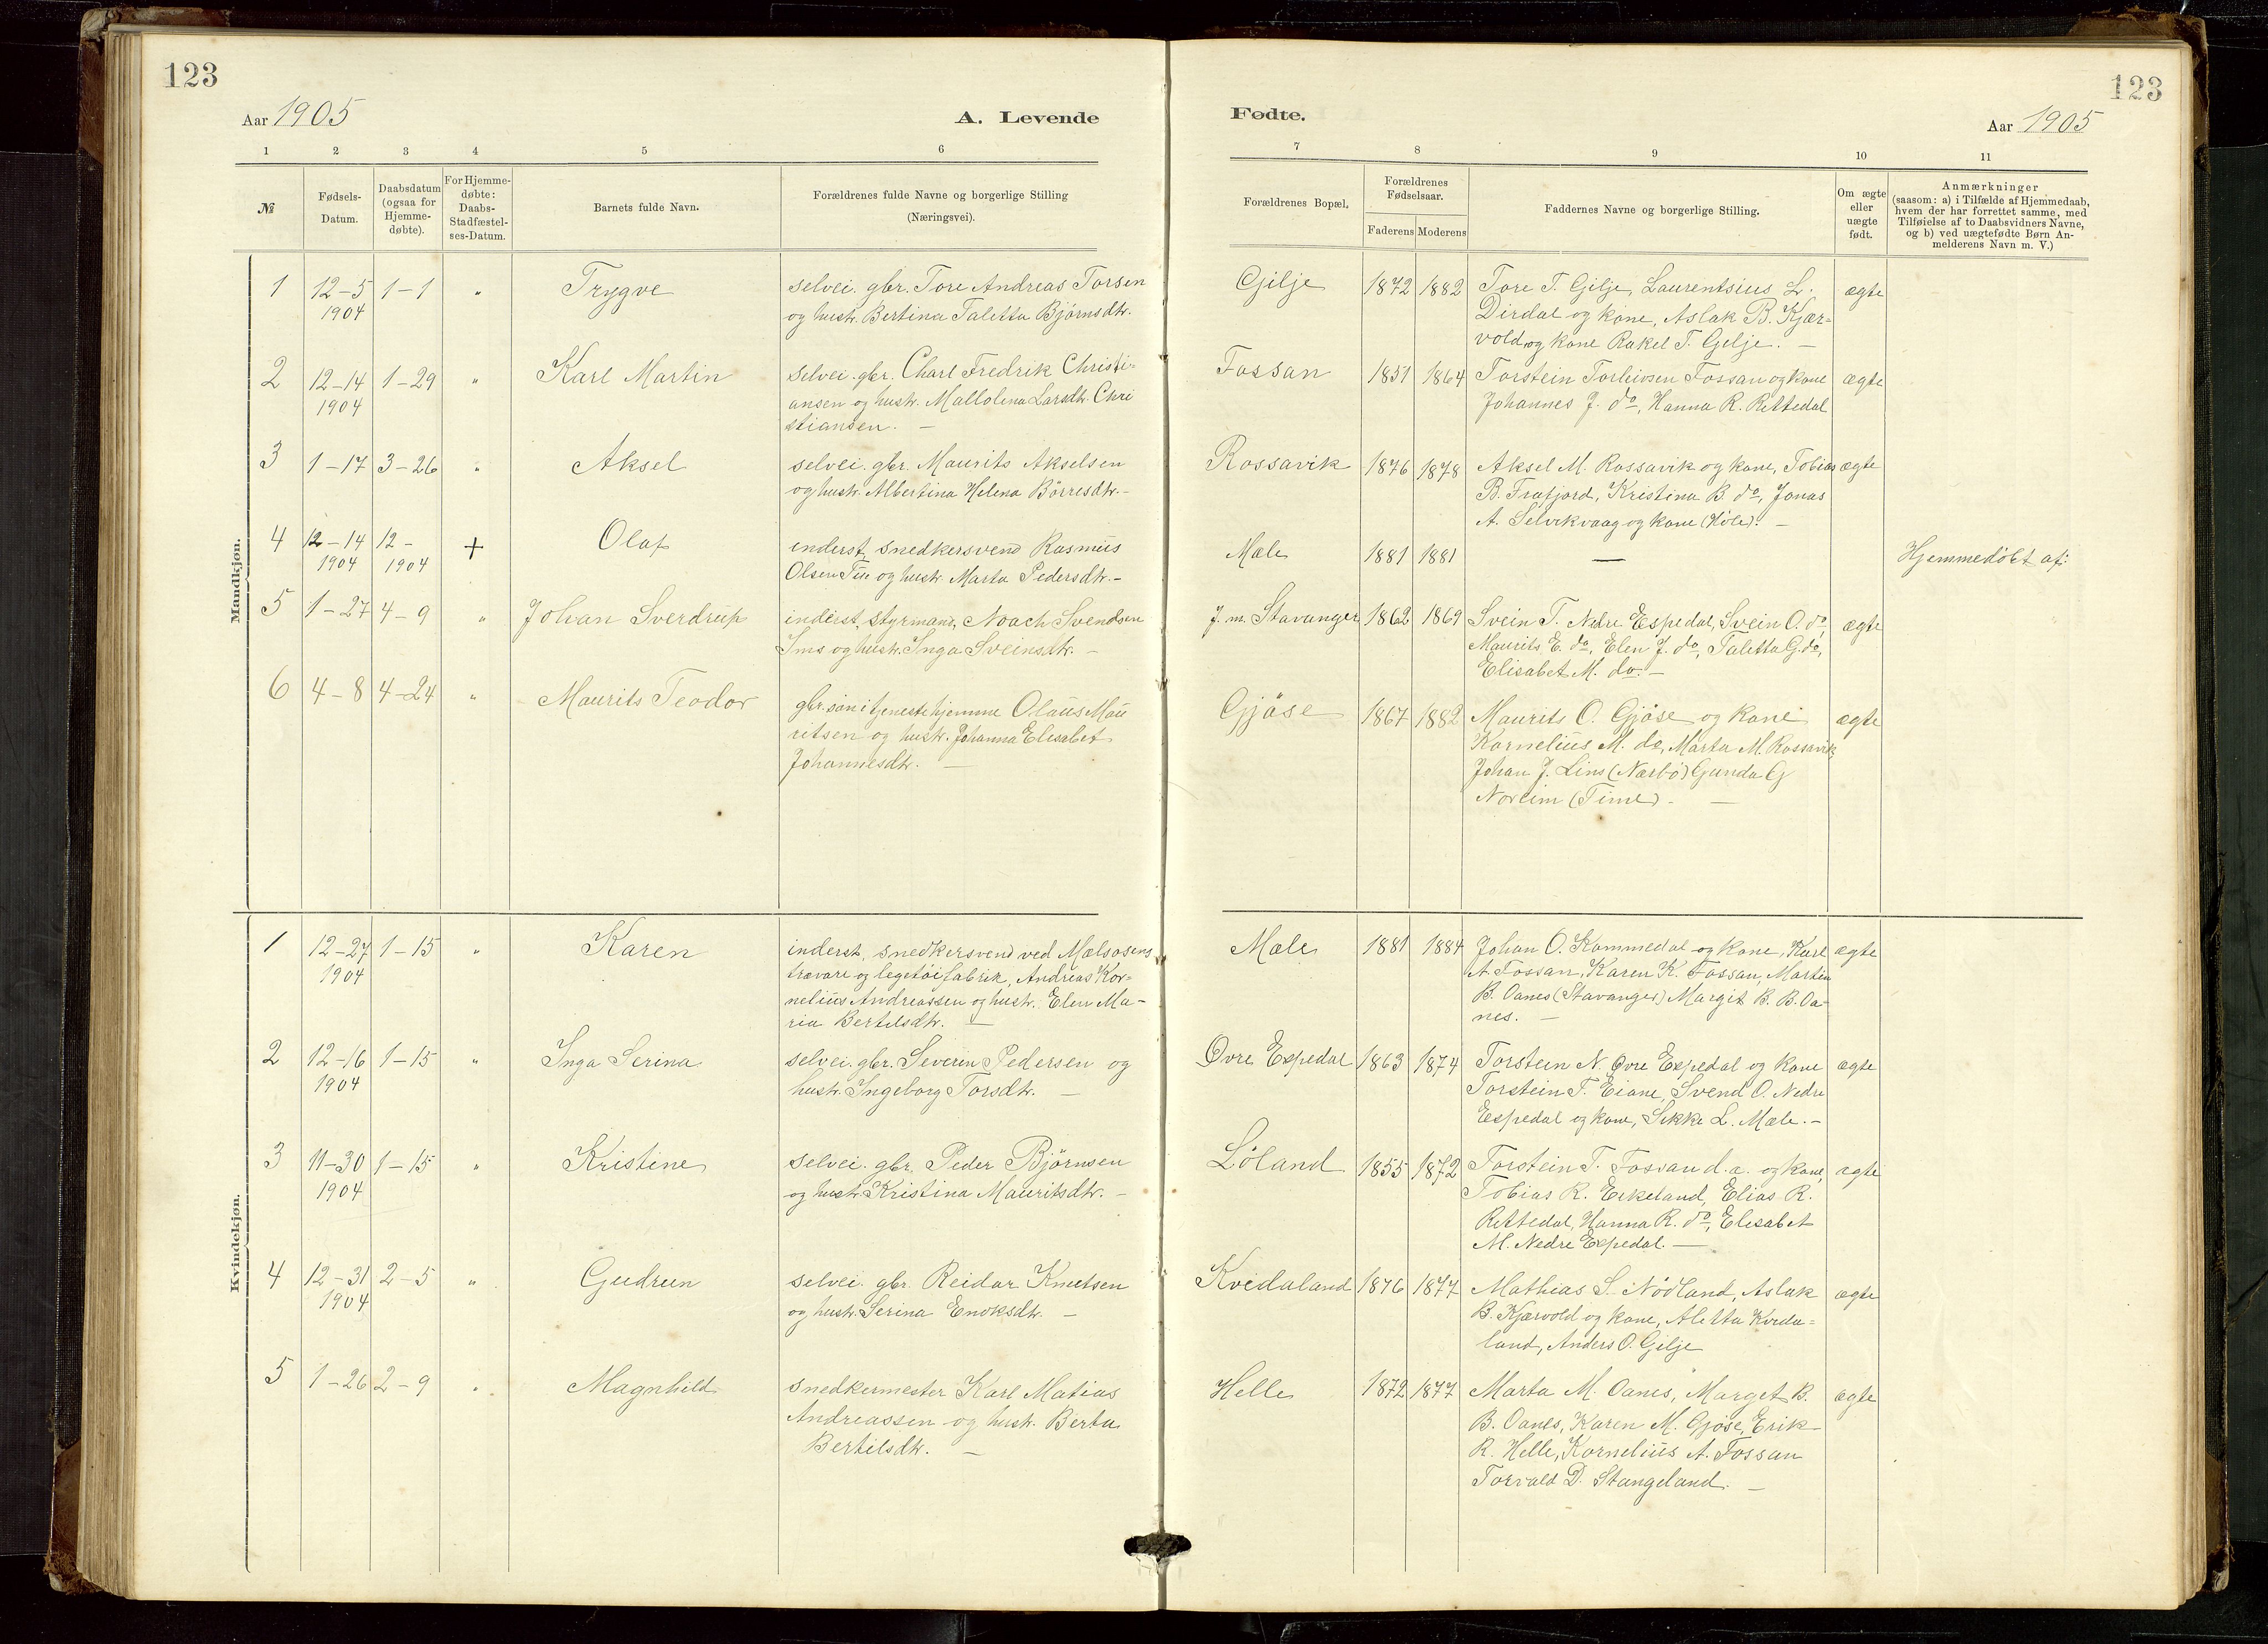 123
Aar 1905
A. Levende
1 2 3 4 5 6
№
Fødsels-
Datum.
Daabsdatum
(ogsaa for
Hjemme-
døbte).
For Hjemme-
døbte:
Daabs-
Stadfæstel-
ses-Datum.
Barnets fulde Navn.
Forældrenes fulde Navne og borgerlige Stilling
(Næringsvei).
Mandkjøn.
1 12-5 1-1 " Trygve selvei. gbr. Tore Andreas Torsen
1904 og hustr. Bertina Taletta Bjørnsdtr.
2 12-14 1-29 " Karl Martin selvei. gbr. Charl Fredrik Christi-
1904 ansen og hustr. Mallolena Larsdtr. Chri
stiansen. —
3 1-17 3-26 " Aksel selvei. gbr. Maurits Akselsen
og hustr. Albertina Helena Börresdtr. -
4 12-14 12- + Olaf enderst, snedkersvend Rasmus
1904 1904 Olsen og hustr. Marta Pedersdtr. -
5 1-27 4-9 " Johan Sverdrup inderst, styrmand, Noach Svendsen
Ims og hustr. Inga Sveinsdtr. -
6 4-8 4-24 " Maurits Teodor gbr. sön i tjeneste hjemme Olaus Mau
ritsen og hustr. Johanna Elisabet
Johannesdtr. —
Kvindekjøn.
1 12-27 1-15 " Karen inderst, snedkersvend ved Mælsosens
1904 trævare og legetöifabrik, Andreas Kor-
nelius Andreassen og hustr. Elen Ma-
ria Bertilsdtr. —
2 12-16 1-15 " Inga Serina selvei. gbr. Severin Pedersen og
1904 hustr. Ingeborg Torsdtr. —
3 11-30 1-15 " Kristine selvei. gbr. Peder Björnsen
1904 og hustr. Kristina Mauritsdtr. -
4 12-31 2-5 " Gudrun selvei. gbr. Reidar Knutsen
1904 og hustr. Serina Enoksdtr. —
5 1-26 2-9 " Magnhild snedkermester Karl Matias
Andreassen og hustr. Berta
Bertilsdtr. —
123
Fødte.
Aar 1905
7 8 9 10 11
Forældrenes Bopæl.
Forældrenes
Fødselsaar.
Faderens Moderens
Faddernes Navne og borgerlige Stilling.
Om ægte
eller
uægte
født.
Anmærkninger
(saasom: a) i Tilfælde af Hjemmedaab,
hvem der har forrettet samme, med
Tilføielse af to Daabsvidners Navne,
og b) ved uægtefødte Børn An-
melderens Navn m. V.)
Gilje 1872 1882 Tore T. Gilje, Laurentsius L. ægte
Dirdal og kone, Aslak B. Kjær-
vold og kone Rakel T. Gilje. —
Fossan 1851 1864 Torstein Torleivsen Fossan og kone ægte
Johannes J. do, Hanna R. Rettedal
Rossavik 1876 1878 Aksel M. Rossavik og kone, Tobias ægte
B. Frafjord, Kristina B. do, Jonas
A. Selvikvaag og kone (Höle). —
Mæle 1881 1881 — Hjemmedöbt af:
J. m. Stavanger 1862 1869 Svein T. Nedre Espedal, Svein O. do, ægte
Maurits E. do, Elen J. do, Taletta G. do,
Elisabet M. do. —
Gjöse 1867 1882 Maurits O. Gjöse og kone ægte
Kornelius M. do, Marta M. Rossavik,
Johan J. Lins (Nærbö) Gunda G
Noreim (Time). —
Mæle 1881 1884 Johan O. Kommedal og kone, Karl ægte
A. Fossan, Karen K. Fossan, Martin
B. Oanes (Stavanger) Margit B. B. Oa-
nes. —
Övre Espedal 1863 1874 Torstein N. Övre Espedal og kone ægte
Torstein T. Eiane, Svend O. Nedre
Espedal og kone, Sikke L. Mæle. -
Löland 1855 1872 Torstein T. Fossan d. æ. og kone, ægte
Tobias R. Eikeland, Elias R.
Rettedal, Hanna R. do, Elisabet
M. Nedre Espedal. —
Kvidaland 1876 1877 Mathias S. Nödland, Aslak ægte
B. Kjærvold og kone, Aletta Kvida-
land, Anders O. Gilje
Helle 1872 1877 Marta M. Oanes, Marget B. ægte
B. Oanes, Karen M. Gjöse, Erik
R. Helle, Kornelius A. Fossan
Torvald D. Stangeland. —